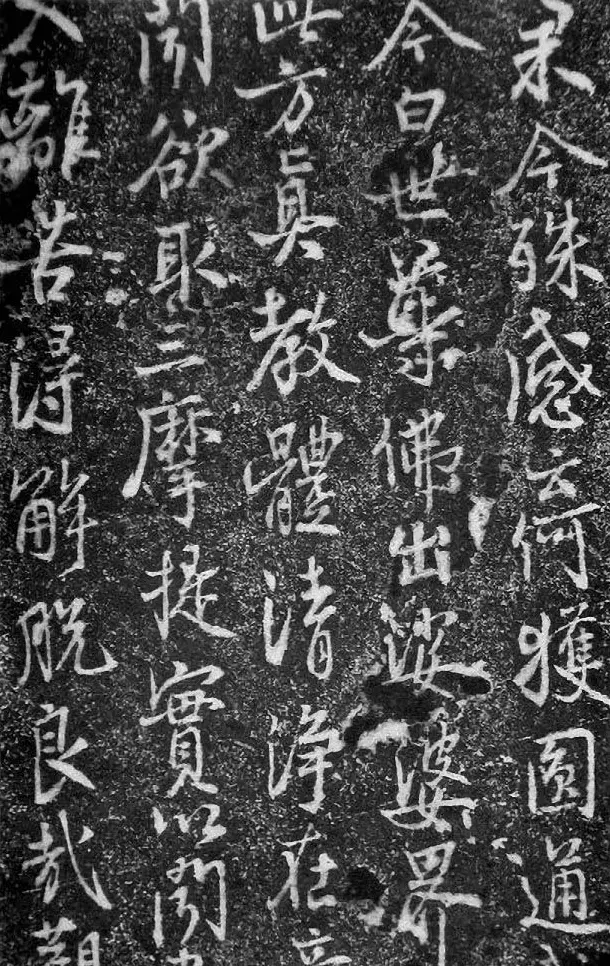 果今殊感云何獲圓通
今白世尊佛出娑婆界
此方眞教體清淨在音
聞欲取三摩提實以聞中
入離苦得解脫良哉觀